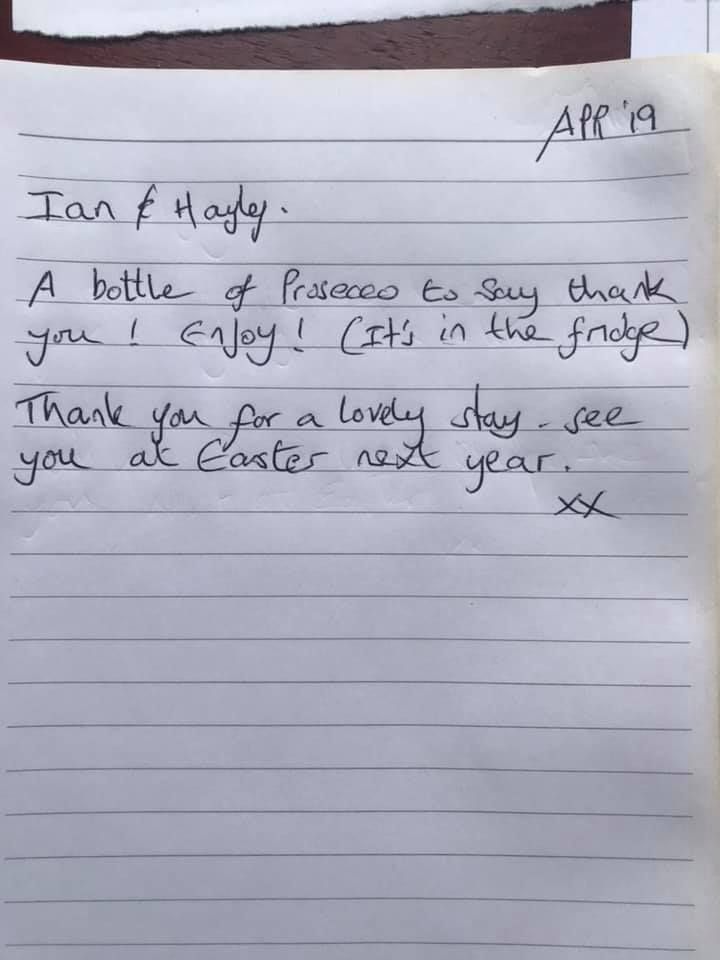 APR '19
Ian & Hayley.
A bottle of Prosecco to say thank
you! Enjoy! (It's in the fridge)
Thank you for a lovely stay - see
you at Easter next year.
xx